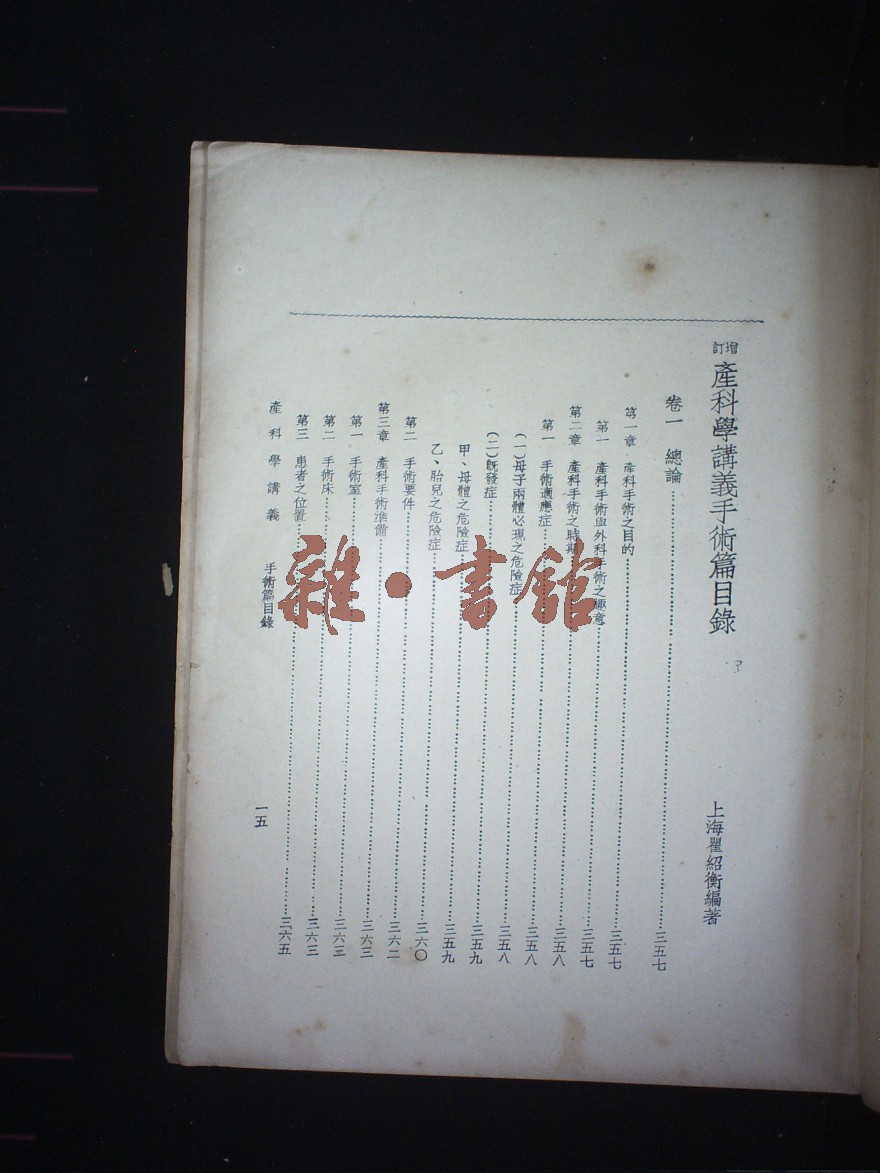 增訂產科學講義手術篇目錄
上海瞿紹衡編著
卷一 總論……三五七
第一章 產科手術之目的……三五七
第一 產科手術與外科手術之趣意……三五七
第二章 產科手術之時期……三五八
第一 手術適應症……三五八
(一)母子兩體必現之危險症……三五八
(二)既發症……三五九
甲、母體之危險症……三五九
乙、胎兒之危險症……三六〇
第二 手術要件……三六二
第三章 產科手術準備……三六三
第一 手術室……三六三
第二 手術床……三六三
第三 患者之位置……三六五
產科學講義 手術篇目錄 一五
雜·書館